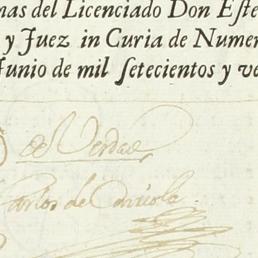 nas del Licenciado Don Este
y Juez in Curia de Numer
Junio de mil setecientos y ve
de Verdad
Carlos de